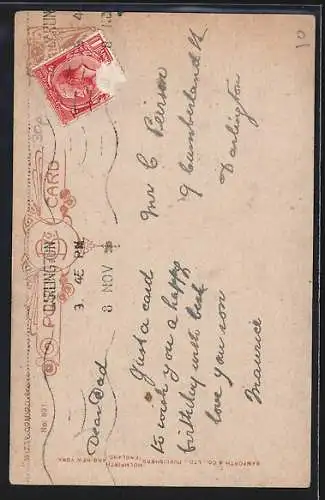 POST CARD
No. 891.
DARLINGTON
3. 45 PM
8 NOV
Dear Dad
Just a card
to wish you a happy
birthday with best
love you son
Maurice
Mr C Peirson
9 Cumberland St
Darlington
BAMFORTH & CO., LTD., PUBLISHERS,
HOLMFIRTH
(ENGLAND)
AND NEW YORK
10